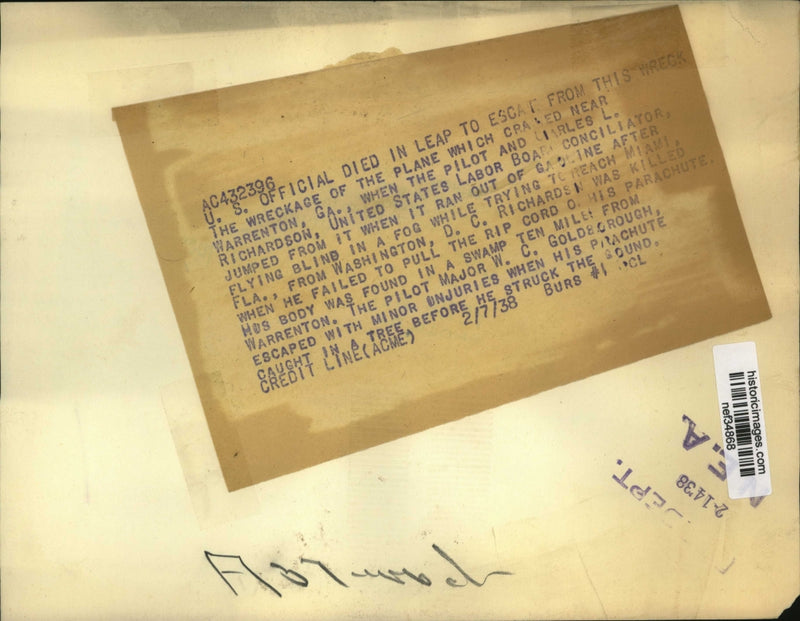 AC432396
U. S. OFFICIAL DIED IN LEAP TO ESCA E FROM THIS WRECK
THE WRECKAGE OF THE PLANE WHICH CRA ED NEAR
WARRENTON, GA., WHEN THE PILOT AND CHARLES L.
RICHARDSON, UNITED STATES LABOR BOARD CONCILIATOR,
JUMPED FROM IT WHEN IT RAN OUT OF GASOLINE AFTER
FLYING BLIND IN A FOG WHILE TRYING TO REACH MIAMI,
FLA., FROM WASHINGTON, D. C. RICHARDSON WAS KILLED
WHEN HE FAILED TO PULL THE RIP CORD OF HIS PARACHUTE.
HIS BODY WAS FOUND IN A SWAMP TEN MILES FROM
WARRENTON. THE PILOT MAJOR W. C. GOLDBOROUGH,
ESCAPED WITH MINOR INJURIES WHEN HIS PARACHUTE
CAUGHT IN A TREE BEFORE HE STRUCK THE GOUND.
CREDIT LINE(ACME) 2/7/38 BURS #1 CL
historicimages.com
nef34868
DEPT.
2-14'38
E.A